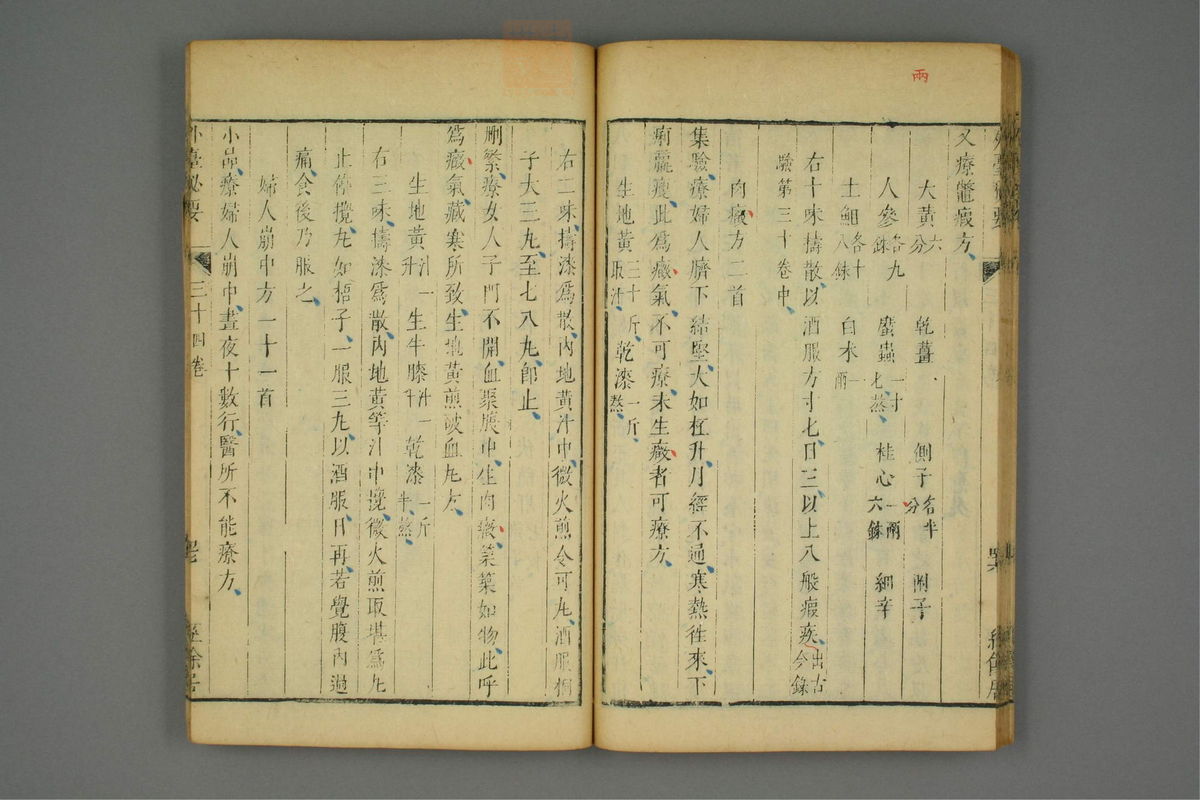 兩
又療鱉瘕方
大黃六分 乾薑 側子各半分 附子
人參各九銖 䗪蟲一寸匕熬 桂心一兩六銖 細辛
土䱇各十八銖 白朮一兩
右十味擣散以酒服方寸匕日三以上八般瘕疾出古今錄
驗第三十卷中
肉癥方二首
集驗療婦人臍下結堅大如杯升月經不通寒熱往來下
痢羸瘦此為癥氣不可療未生癥者可療方
生地黃三十斤取汁 乾漆一斤熬
右二味擣漆為散內地黃汁中微火煎令可丸酒服桐
子大三丸至七八丸即止
刪繁療女人子門不開血聚腹中生肉癥築築如物此呼
為癥氣藏寒所致生地黃煎破血丸方
生地黃汁一升 生牛膝汁一升 乾漆一斤半熬
右三味擣漆為散內地黃等汁中攪微火煎取堪為丸
止停攪丸如梧子一服三丸以酒服日再若覺腹內過
痛食後乃服之
婦人崩中方一十一首
小品療婦人崩中晝夜十數行醫所不能療方
外臺秘要 三十四卷
經餘居